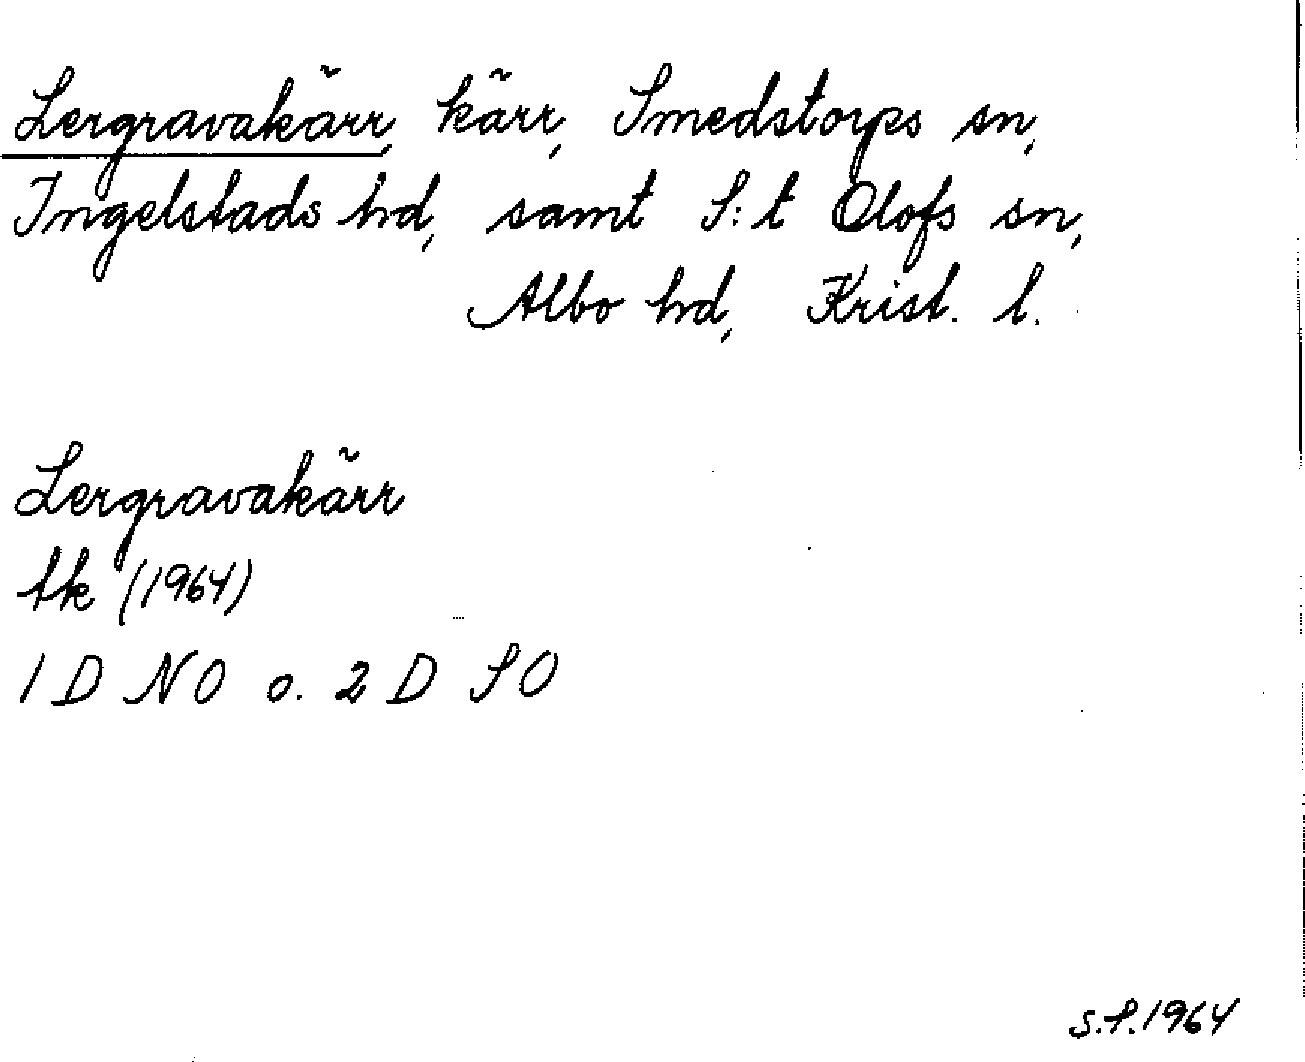 Lergravakärr, kärr, Smedstorps sn,
Ingelstads hd, samt S:t Olofs sn,
Albo hd, Krist. l.
Lergravakärr
tk (1964)
1 D NO o. 2 D SO
S.S. 1964